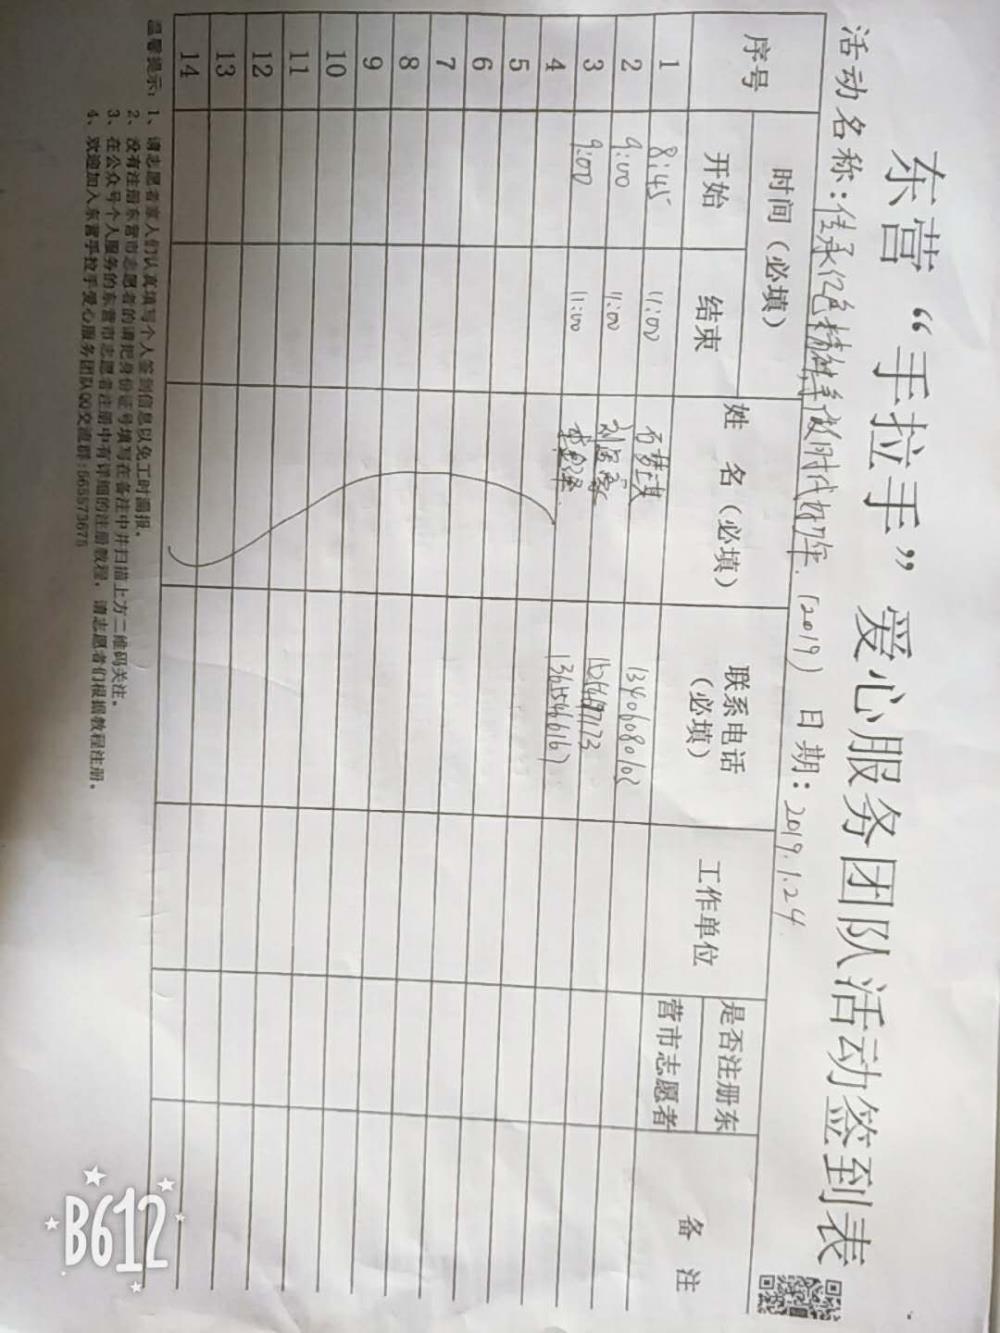 东营“手拉手”爱心服务团队活动签到表
活动名称：传承红色精神争做时代好少年.(2019) 日期：2019.1.24
序号 时间（必填） 姓 名（必填） 联系电话（必填） 工作单位 是否注册东营市志愿者 备 注
开始 结束
1 8:45 11:00 13406080102
2 9:00 11:00
3 9:00 11:00 13655466167
4
5
6
7
8
9
10
11
12
13
14
温馨提示：1、请志愿者家人们认真填写个人签到信息以免工时漏报。
2、没有注册东营市志愿者的请把身份证号填写在备注中并扫描上方二维码关注。
3、在公众号个人服务的东营市志愿者注册中有详细的注册教程，请志愿者们根据教程注册。
4、欢迎加入东营手拉手爱心服务团队QQ交流群：565573675
B612